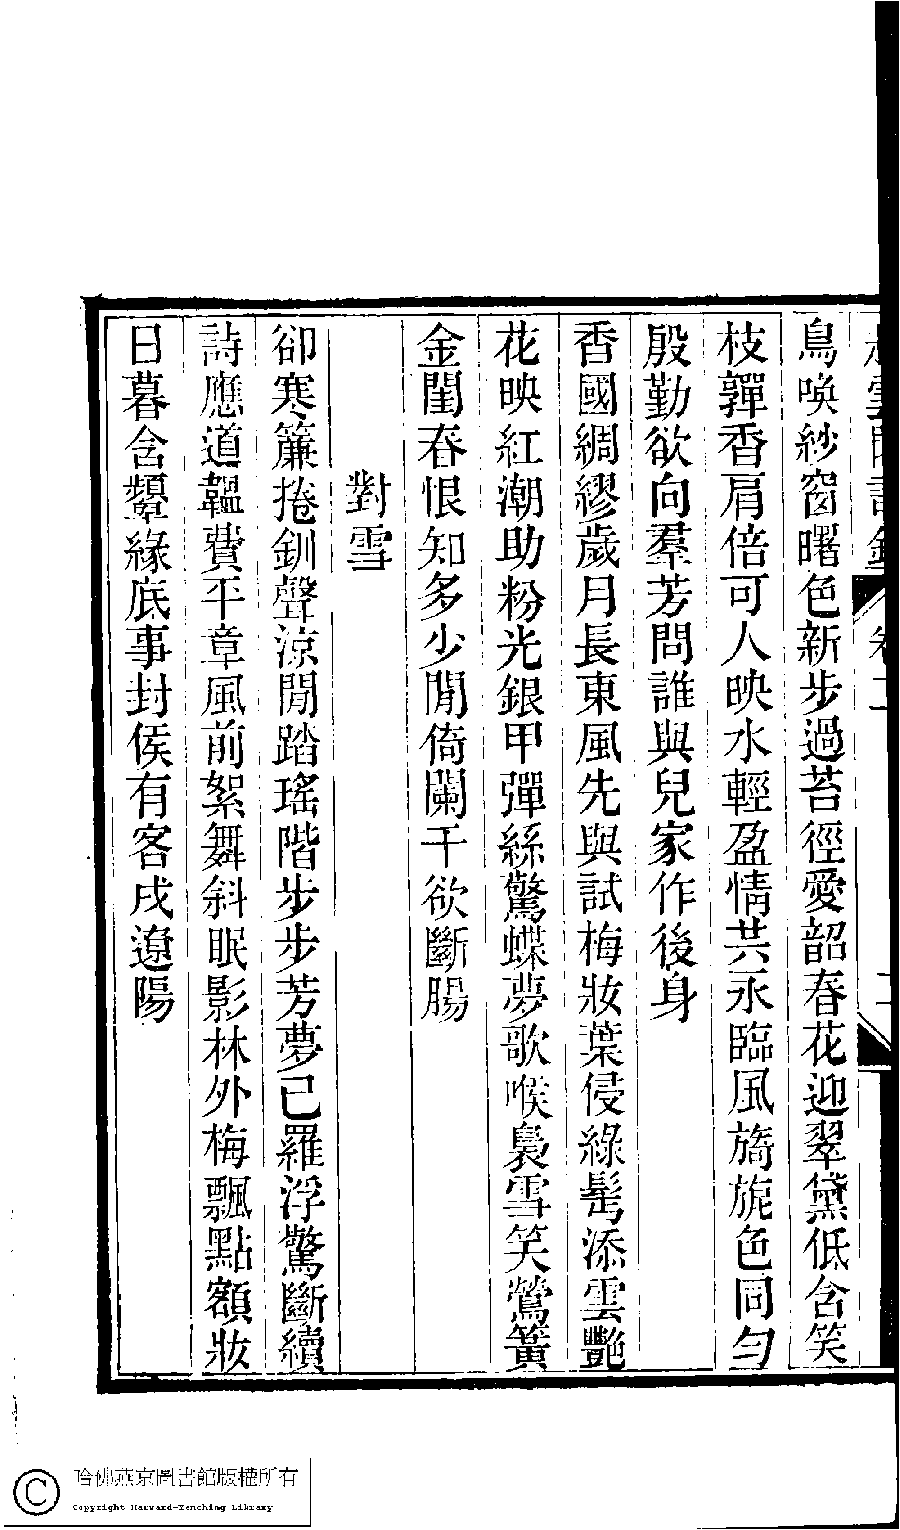 鳥喚紗窗曙色新步過苔徑愛韶春花迎翠黛低含笑
枝嚲香肩倍可人映水輕盈情共永臨風旖旎色同勻
殷勤欲向羣芳問誰與兒家作後身
香國綢繆歲月長東風先與試梅妝葉侵綠髩添雲艷
花映紅潮助粉光銀甲彈絲驚蝶夢歌喉裊雪笑鶯簧
金閨春恨知多少閒倚闌干欲斷腸
對雪
卻寒簾捲釧聲涼閒踏瑤階步步芳夢已羅浮驚斷續
詩應道韞費平章風前絮舞斜眠影林外梅飄點額妝
日暮含顰緣底事封侯有客戍遼陽
哈佛燕京圖書館版權所有
Copyright Harvard-Yenching Library